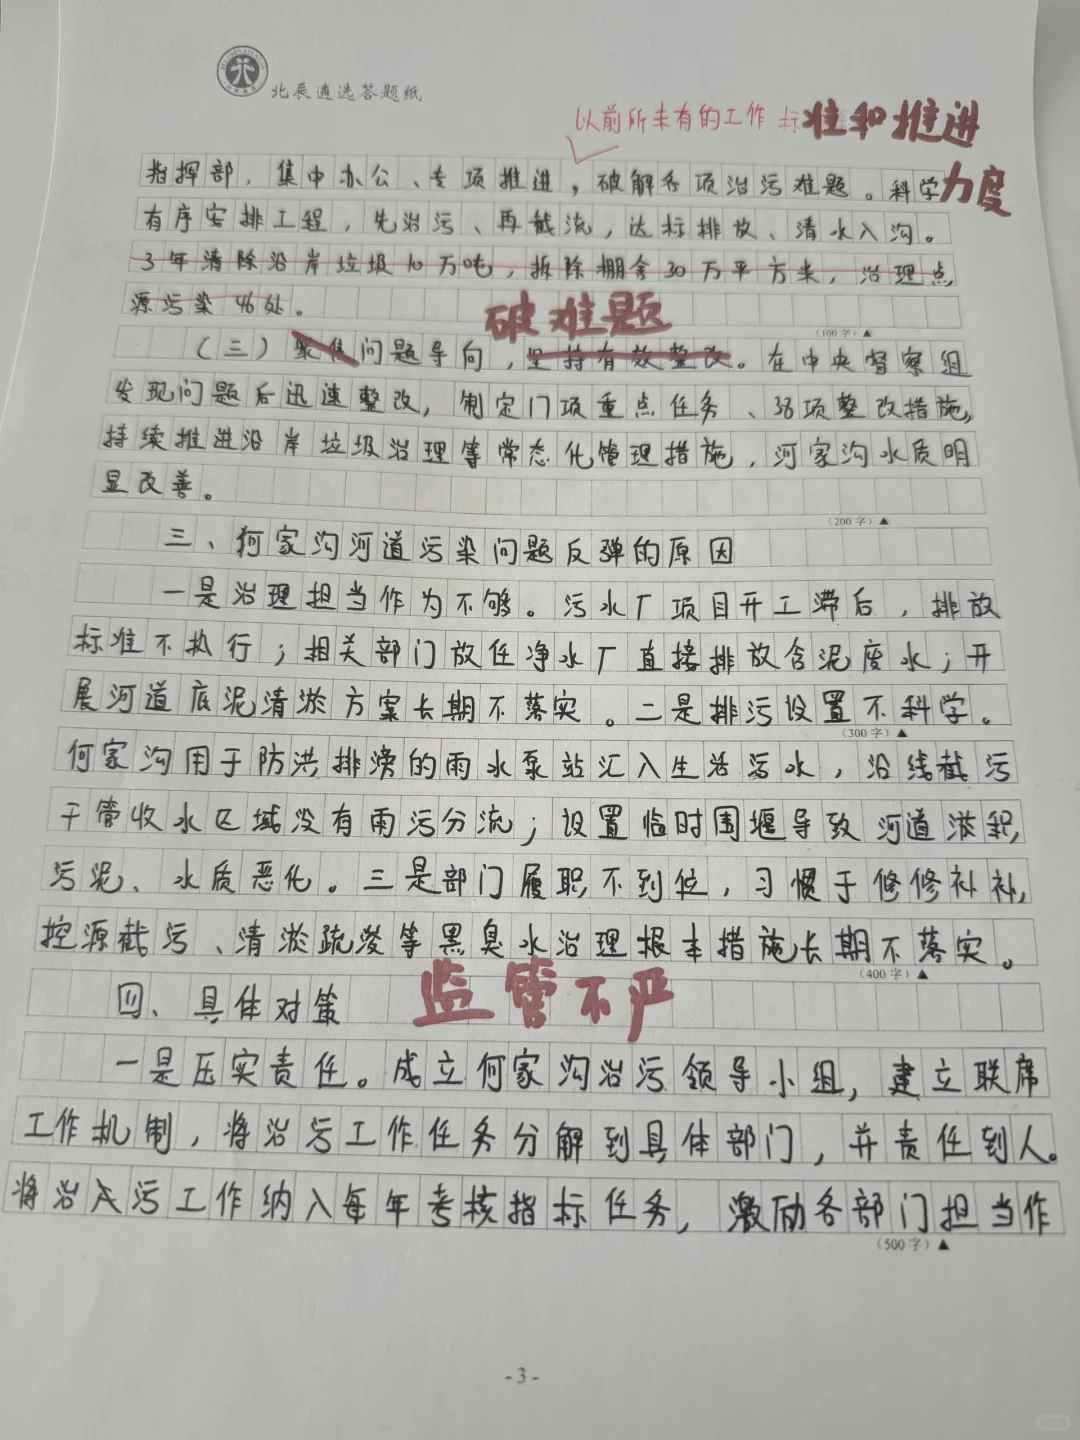 北辰遴选答题纸
以前所未有的工作标准和推进
力度
指挥部，集中办公、专项推进，破解各项治污难题。科学
有序安排工程，先治污、再截流，达标排放、清水入沟。
3年清除沿岸垃圾10万吨，拆除棚舍30万平方米，治理点
源污染46处。
破难题
（100字）▲
（三）聚焦问题导向，坚持有效整改。在中央督察组
发现问题后迅速整改，制定门项重点任务、36项整改措施，
持续推进沿岸垃圾治理等常态化管理措施，河家沟水质明
显改善。
（200字）▲
三、何家沟河道污染问题反弹的原因
一是治理担当作为不够。污水厂项目开工滞后，排放
标准不执行；相关部门放任净水厂直接排放含泥废水；开
展河道底泥清淤方案长期不落实。二是排污设置不科学。
（300字）▲
何家沟用于防洪排涝的雨水泵站汇入生活污水，沿线截污
干管收水区域没有雨污分流；设置临时围堰导致河道淤积，
污泥、水质恶化。三是部门履职不到位，习惯于修修补补，
控源截污、清淤疏浚等黑臭水治理根本措施长期不落实。
（400字）▲
监管不严
四、具体对策
一是压实责任。成立何家沟治污领导小组，建立联席
工作机制，将治污工作任务分解到具体部门，并责任到人。
将治污工作纳入每年考核指标任务，激励各部门担当作
（500字）▲
-3-